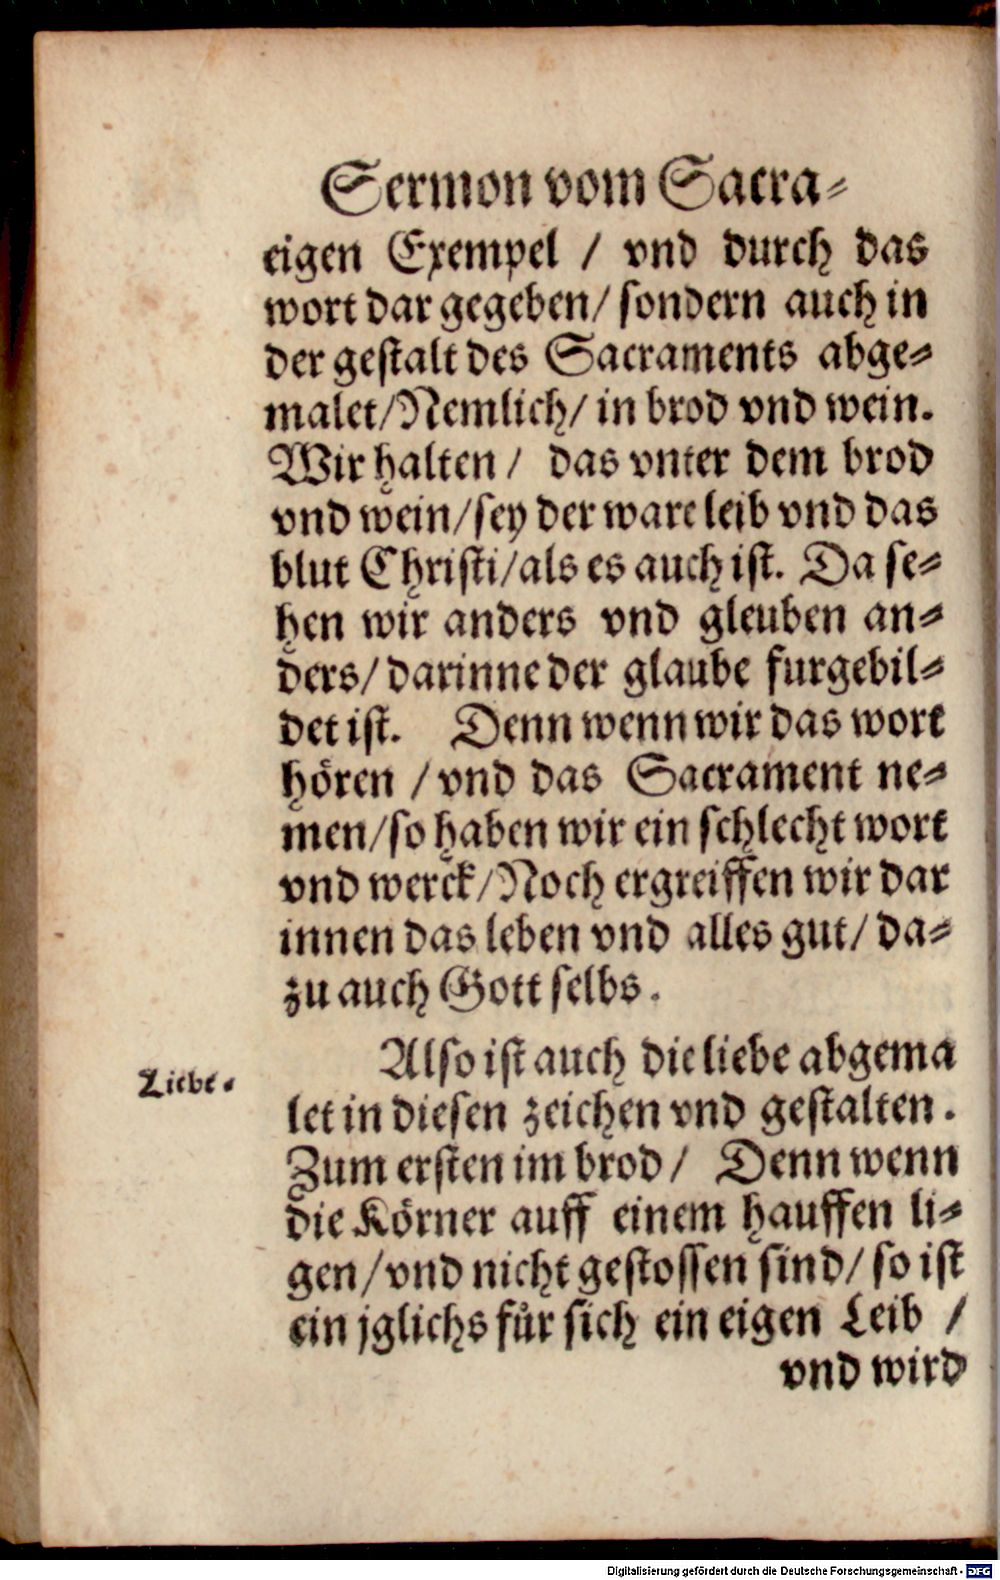 Sermon vom Sacra⸗
eigen Exempel / vnd durch das
wort dar gegeben/ sondern auch in
der gestalt des Sacraments abge⸗
malet/Nemlich/ in brod vnd wein.
Wir halten / das vnter dem brod
vnd wein/sey der ware leib vnd das
blut Christi/als es auch ist. Da se⸗
hen wir anders vnd gleuben an⸗
ders/ darinne der glaube furgebil⸗
det ist. Denn wenn wir das wort
hören / vnd das Sacrament ne⸗
men/so haben wir ein schlecht wort
vnd werck/Noch ergreiffen wir dar
innen das leben vnd alles gut/ da⸗
zu auch Gott selbs.
Also ist auch die liebe abgema
Liebe.
let in diesen zeichen vnd gestalten.
Zum ersten im brod / Denn wenn
die Körner auff einem hauffen li⸗
gen/vnd nicht gestossen sind/ so ist
ein jglichs fuͤr sich ein eigen Leib /
vnd wird
Digitalisierung gefördert durch die Deutsche Forschungsgemeinschaft - DFG